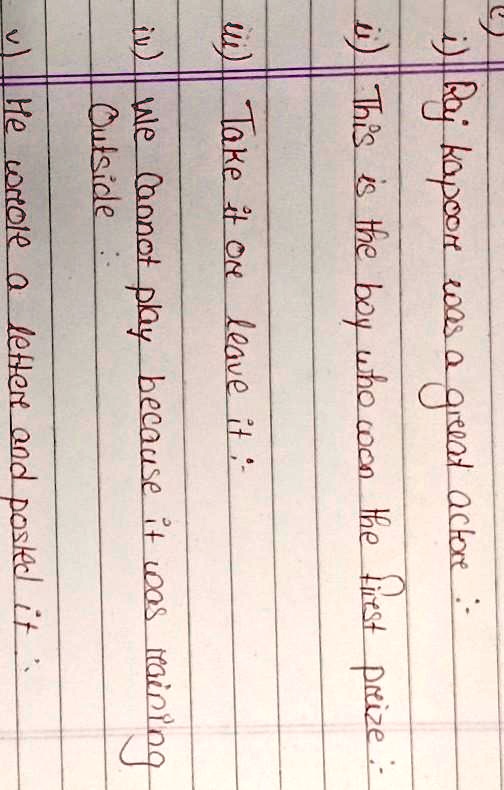 i) Raj kapoor was a great actor :-
ii) This is the boy who won the first prize :-
iii) Take it or leave it :-
iv) We Cannot play because it was raining
Outside :
v) He wrote a letter and posted it :